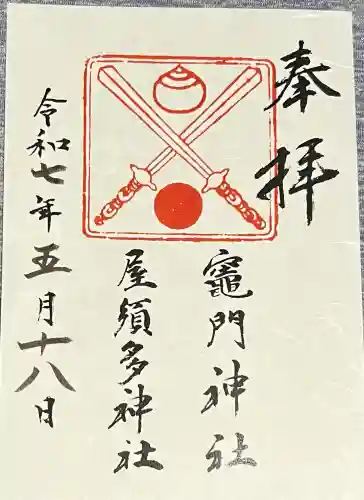 奉拝
竈門神社
屋須多神社
令和七年五月十八日